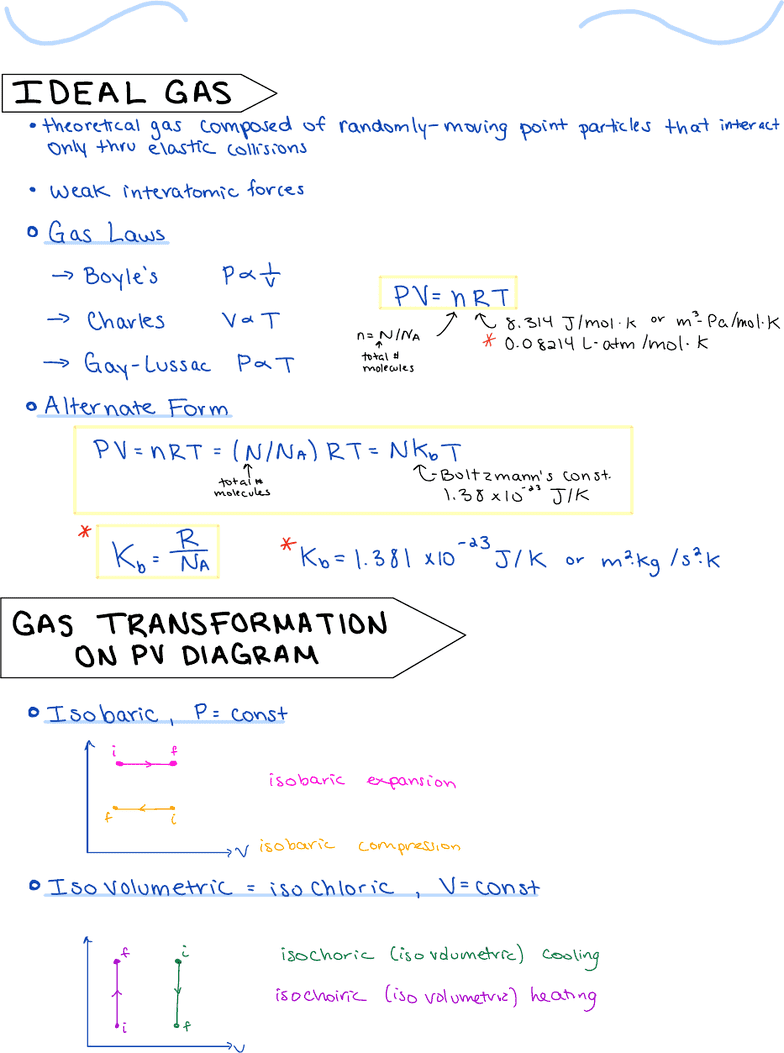 IDEAL GAS
• theoretical gas composed of randomly-moving point particles that interact
only thru elastic collisions
• weak interatomic forces
• Gas Laws
→ Boyle's P ∝ 1/V
→ Charles V ∝ T
→ Gay-Lussac P ∝ T
PV = nRT
n = N/NA
total #
molecules
8.314 J/mol·K or m³·Pa/mol·K
* 0.08214 L-atm/mol·K
• Alternate Form
PV = nRT = (N/NA) RT = NKbT
total #
molecules
Boltzmann's const.
1.38 x10⁻²³ J/K
* Kb = R/NA
* Kb = 1.381 x10⁻²³ J/K or m²·kg/s²·K
GAS TRANSFORMATION
ON PV DIAGRAM
• Isobaric, P = const
i f
isobaric expansion
f i
V
isobaric compression
• Isovolumetric = isochloric, V = const
f i
isochoric (isovolumetric) cooling
isochoiric (isovolumetric) heating
i f
V